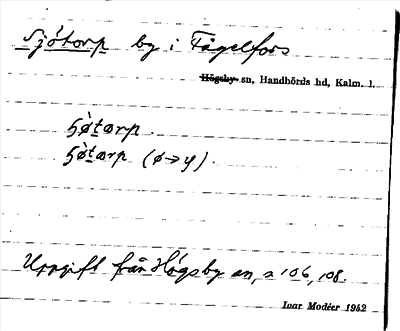 Sjötorp by i Fågelfors
Högsby sn, Handbörds hd, Kalm. l.
ɧø̀tarp.
ɧø̀tarp (ø→y).
Uppgift från Högsby sn, s 106, 108.
Ivar Modéer 1942